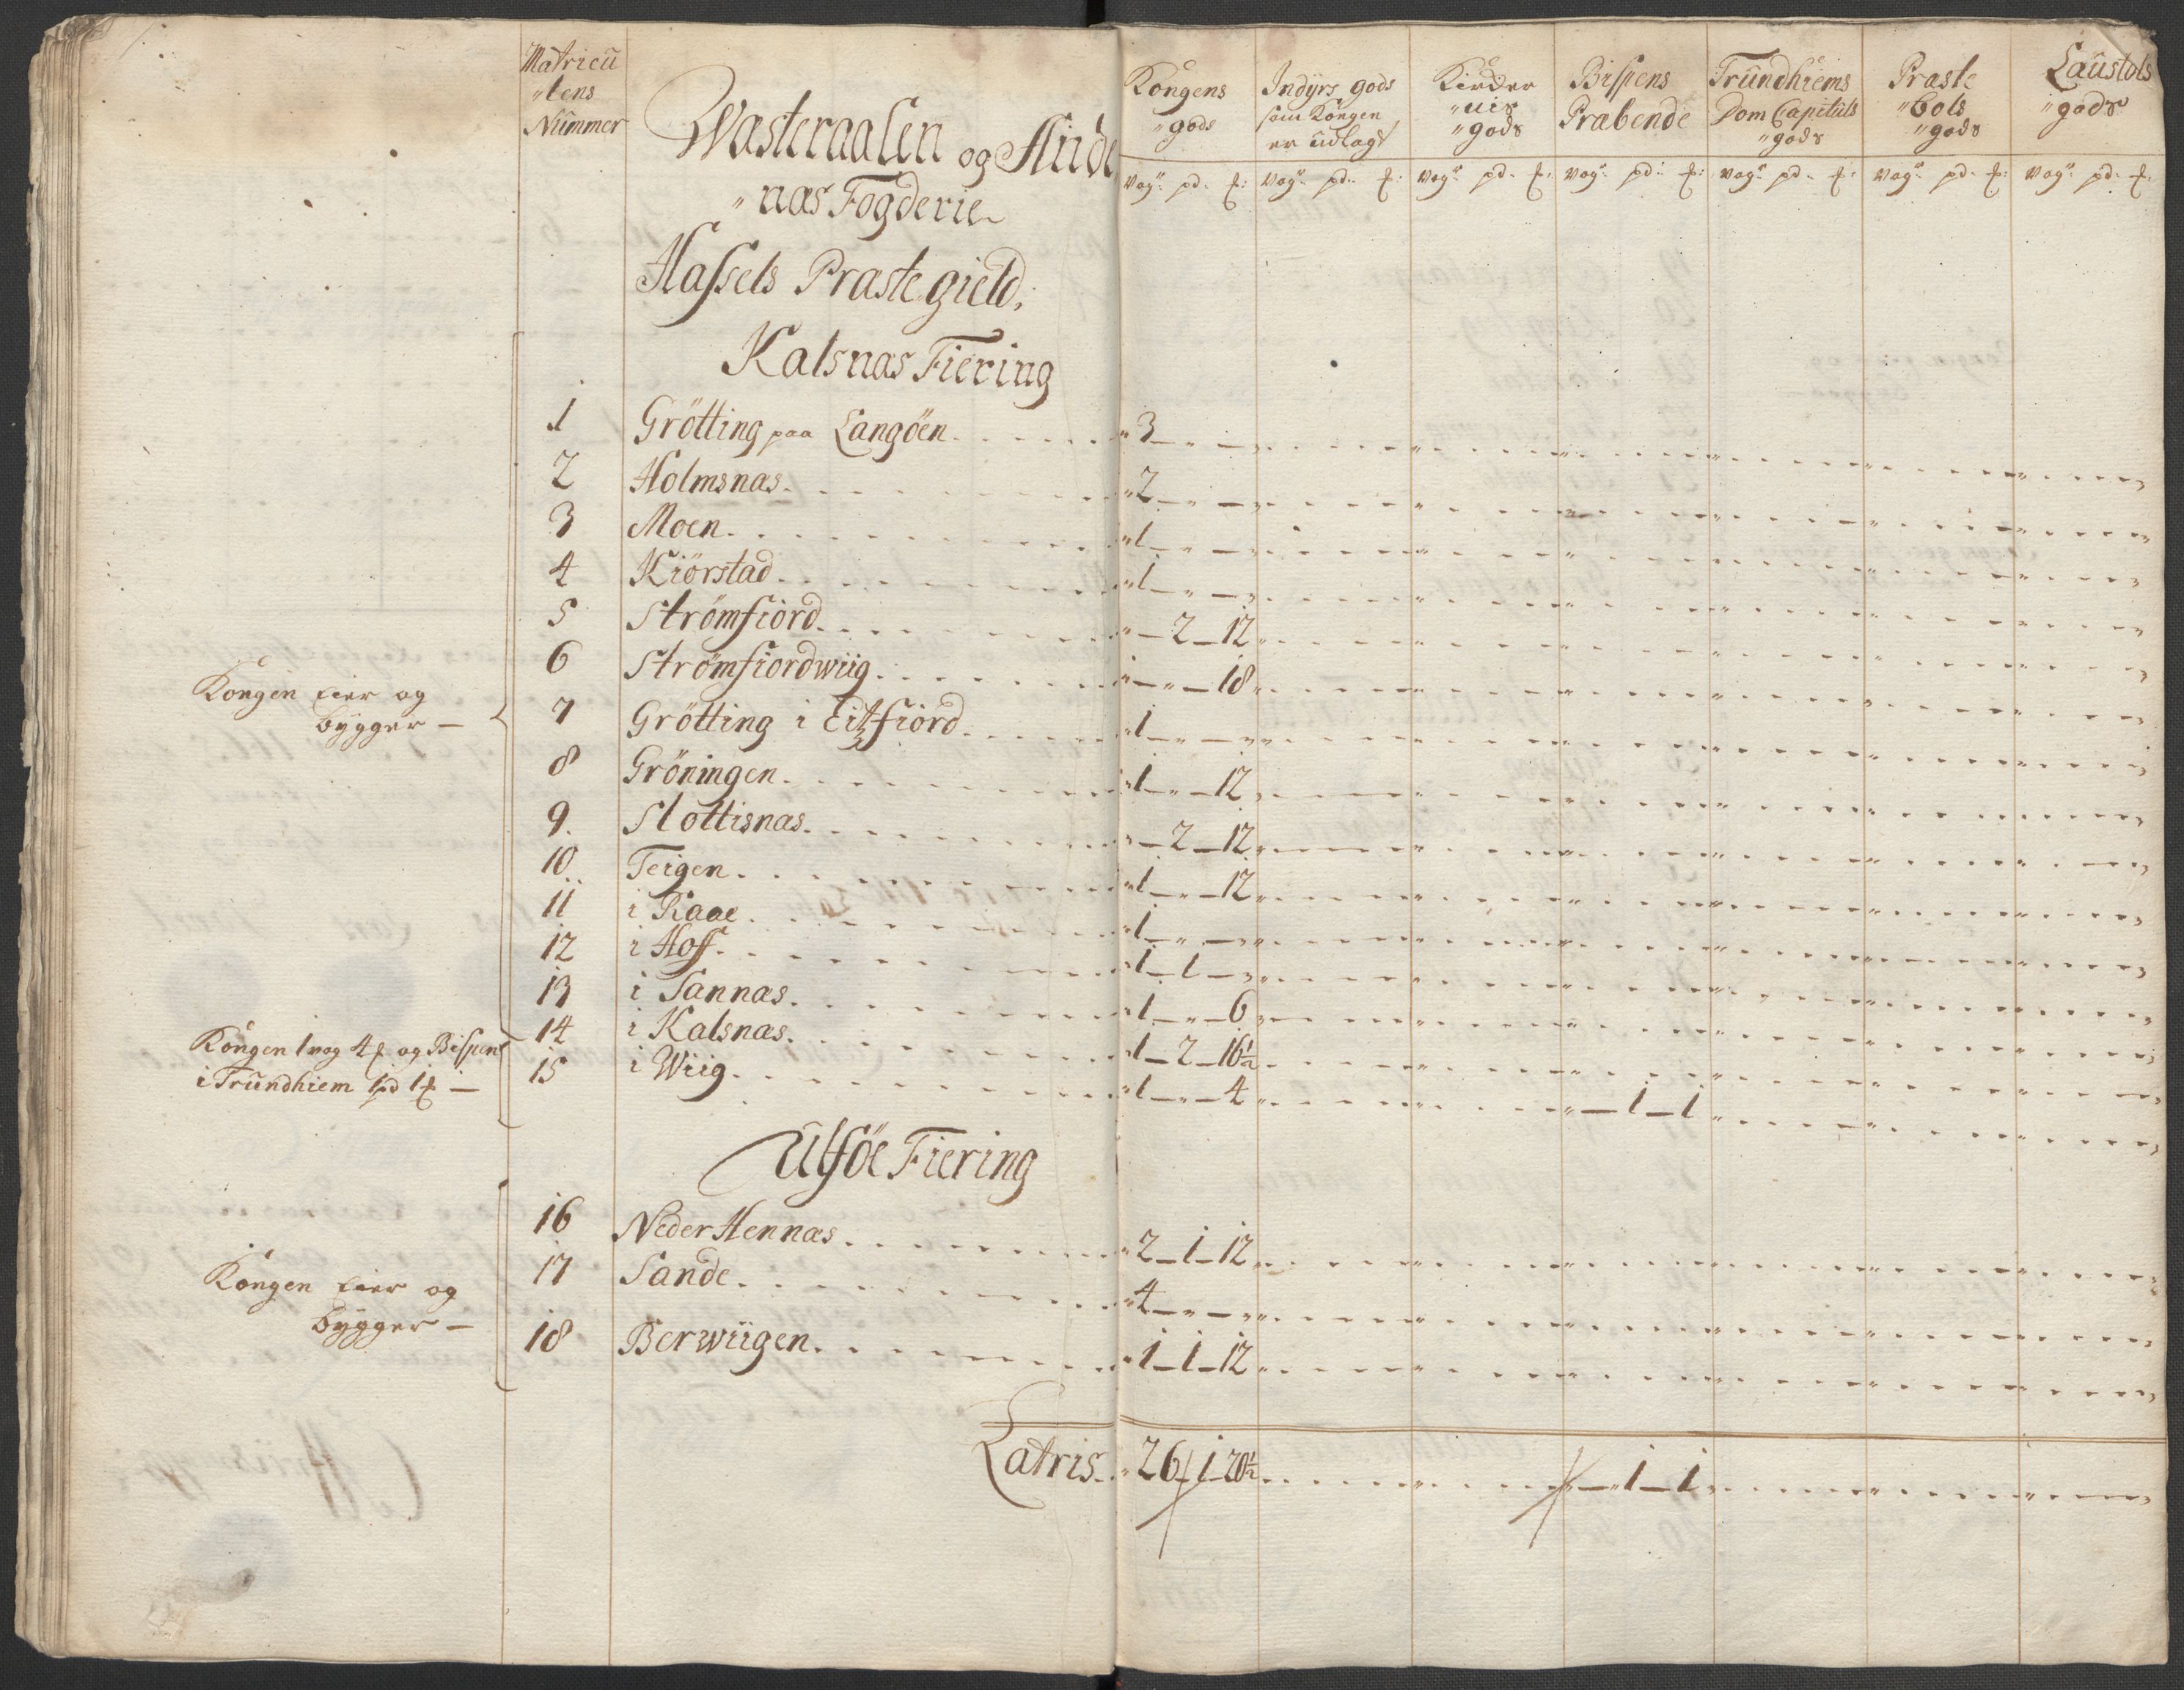 Matricu
"lens
Nummer
Wasteraalen og Ande
"næs Fogderie
Kongens
"gods
Indyrs gods
som Kongen
er udlagt
Kircker
"nis
"gods
Bispens
Præbende
Trundhiems
Dom Capituls
"gods
Præste
"bols
"gods
Laustols
"gods
vog pd. [?] vog pd. vog pd. vog pd. vog pd. vog pd. vog pd.
Hassels Præstegield,
Kalsnæs Fiering
1 Grötting paa Langöen "3 — " —
2 Holmsnæs "2 — " —
3 Moen "1 — " —
4 Kiörstad "1 — " —
5 Strömfiord " — 2 — 12
6 Strömfiordwiig " — " — 18
Kongen Eier og
bygger —
7 Grötting i Eitfiord "1 — " —
8 Gröningen "1 — " — 12
9. Slottisnæs " — 2 — 12
10 Teigen "1 — " — 12
11 i Raae "1 — " —
12 i Hoff "1 — 1 —
13 i Sannæs "1 — " — 6
14 i Kalsnæs "1 — 2 — 16½
Kongen 1 vog 4 og Bispen
i Trundhiem 1 pd 1 —
15 i Wiig "1 — " — 4 " — 1 — 1
Ulföe Fiering
16 Neder Hennæs "2 — 1 — 12
17 Sande "4 — " —
Kongen Eier og
bygger —
18 Berwiigen "1 — 1 — 12
Latris "26 — 1 — 20½ " — 1 — 1